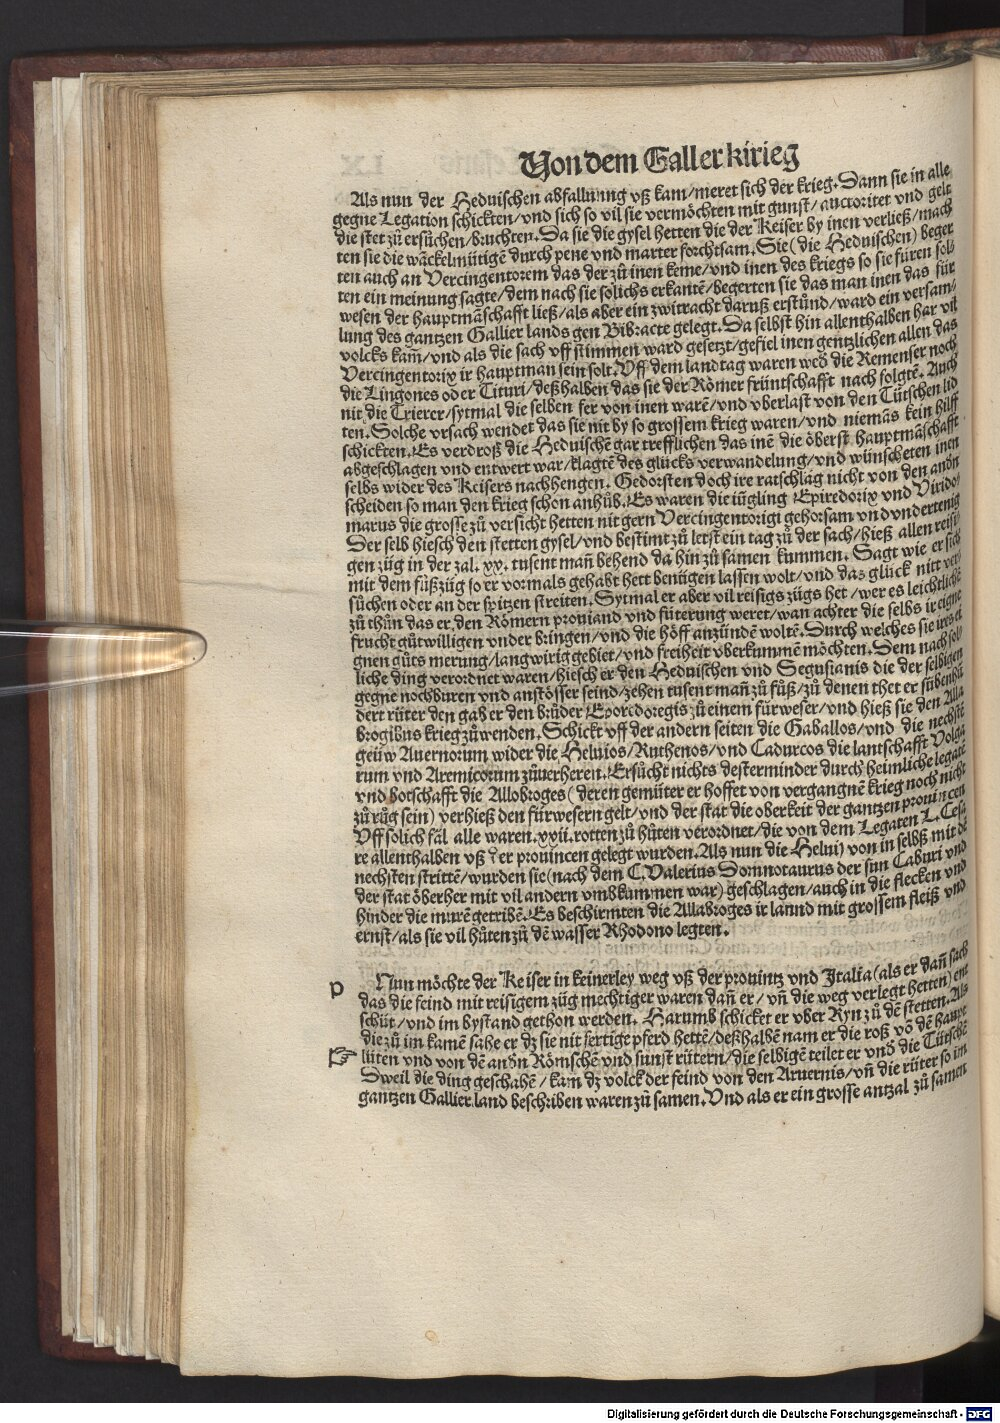 Von dem Galler kirieg
Als nun der Heduischen abfallunng vß kam/meret sich der krieg. Dann sie in alle
gegne Legation schickten/vnd sich so vil sie vermöchten mit gunst/auctoritet vnd gelt
die stet zů ersůchen/bruchten. Da sie die gysel hetten die der Keiser by inen verließ/mach
ten sie die wãckelmütigẽ durch pene vnd marter forchtsam. Sie (die Heduischen) beger
ten auch an Vercingentorem das der zů inen keme/vnd inen des kriegs so sie füren sol
ten ein meinung sagte/dem nach sie solichs erkantẽ/begerten sie das man inen das für
wesen der hauptmãschafft ließ/als aber ein zwitracht daruß erstůnd/ward ein versam
lung des gantzen Gallier lands gen Bibracte gelegt. Da selbst hin allenthalben har vil
volcks kam̃/vnd als die sach vff stimmen ward gesetzt/gefiel inen gentzlichen allen das
Vercingentorix ir hauptman sein solt. Vff dem landtag waren wed̕ die Remenser noch
die Lingones oder Tituri/deßhalben das sie der Römer früntschafft nach folgtẽ. Auch
nit die Trierer/sytmal die selben fer von inen warẽ/vnd vberlast von den Tütschen lid
ten. Solche vrsach wendet das sie nit by so grossem krieg waren/vnd niemãs kein hilff
schickten. Es verdroß die Heduischẽ gar trefflichen das inẽ die öberst hauptmãschafft
abgeschlagen vnd entwert war/klagtẽ des glücks verwandelung/vnd wünscheten inen
selbs wider des Keisers nachhengen. Gedorsten doch ire ratschläg nicht von den and̕n
scheiden so man den krieg schon anhůb. Es waren die iüngling Epiredorix vnd Virido
marus die grosse zů versicht hetten nit gern Vercingentorigi gehorsam vnd vndertenig
Der selb hiesch den stetten gysel/vnd bestimt zů letst ein tag zů der sach/hieß allen reisi
gen züg in der zal. xv. tusent mañ behend da hin zů samen kummen. Sagt wie er sich
mit dem fůßzüg so er vormals gehabt hett benügen lassen wolt/vnd das glück nitt ver
sůchen oder an der spitzen streiten. Sytmal er aber vil reisigs zügs het/wer es leichtliche
zů thůn das er den Römern prouiand vnd fůterung weret/wan achter die selbs ir eigne
frucht gůtwilligen vnder bringen/vnd die höff anzündẽ woltẽ. Durch welches sie ires ei
gnen gůts merung/langwirig gebiet/vnd freiheit vberkummẽ möchten. Dem nach sol
liche ding verordnet waren/hiesch er den Heduischen vnd Segusianis die der selbigen
gegne nochburen vnd anstösser seind/zehen tusent mañ zů fůß/zů denen thet er sübenhũ
dert rüter den gab er den brůder Eporedoregis zů einem fürweser/vnd hieß sie den Alla
brogibus krieg zůwenden. Schickt vff der andern seiten die Gaballos/vnd die nechstẽ
geüw Auernorum wider die Heluios/Ruthenos/vnd Cadurcos die lantschafft Volga
rum vnd Aremicorum zůuerheren. Ersůcht nichts desterminder durch heimliche legatẽ
vnd botschafft die Allobroges (deren gemüter er hoffet von vergangnẽ krieg noch nicht
zů růg sein) verhieß den fürwesern gelt/vnd der stat die oberkeit der gantzen prouincen
Vff solich fäl alle waren. xxii. rotten zů hůten verordnet/die von dem Legaten L. Cesa
re allenthalben vß der prouincen gelegt wurden. Als nun die Heluij von in selbß mit dẽ
nechsten strittẽ/wurden sie (nach dem C. Valerius Domnotaurus der sun Caburi vnd
der stat öberher mit vil andern vmbkummen war) geschlagen/auch in die flecken vnd
hinder die murẽ getribẽ. Es beschirmten die Allabroges ir lannd mit grossem fleiß vnd
ernst/als sie vil hůten zů dẽ wasser Rhodono legten.
p Nun möchte der Keiser in keinerley weg vß der prouintz vnd Italia (als er dañ sach
das die feind mit reisigem züg mechtiger waren dañ er/vñ die weg verlegt hetten) ent
schüt/vnd im bystand gethon werden. Harumb schicket er vber Ryn zů dẽ stetten. Als
die zů im kamẽ sahe er dz sie nit fertige pferd hettẽ/deßhalbẽ nam er die roß võ dẽ haupt
lüten vnd von dẽ and̕n Römschẽ vnd sunst rütern/die selbigẽ teilet er vnd̕ die Tütschẽ
Dweil die ding geschahẽ/kam dz volck der feind von den Aruernis/vñ die rüter so im
gantzen Gallier land beschriben waren zů samen. Vnd als er ein grosse antzal zů samen
Digitalisierung gefördert durch die Deutsche Forschungsgemeinschaft - DFG